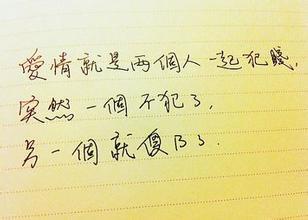 愛情就是兩個人一起犯賤,
突然一個不犯了,
另一個就傻B了.